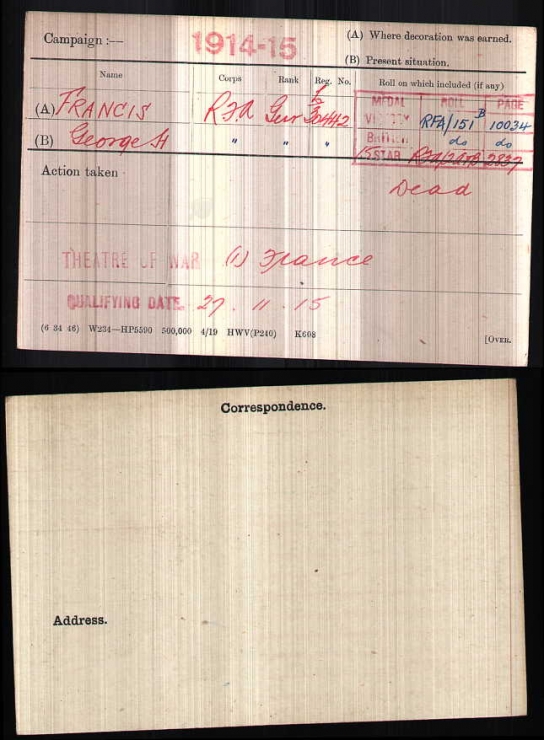 Campaign :—
1914-15
(A) Where decoration was earned.
(B) Present situation.
Name Corps Rank Reg. No. Roll on which included (if any)
MEDAL ROLL PAGE
(A) FRANCIS RFA Gnr L/30442 VICTORY RFA/151B 10034
(B) George H " " " BRITISH do do
15 STAR 2837
Action taken
Dead
THEATRE OF WAR (1) France
QUALIFYING DATE. 27. 11. 15
(6 34 46) W234—HP5590 500,000 4/19 HWV(P240) K608 [OVER.
Correspondence.
Address.